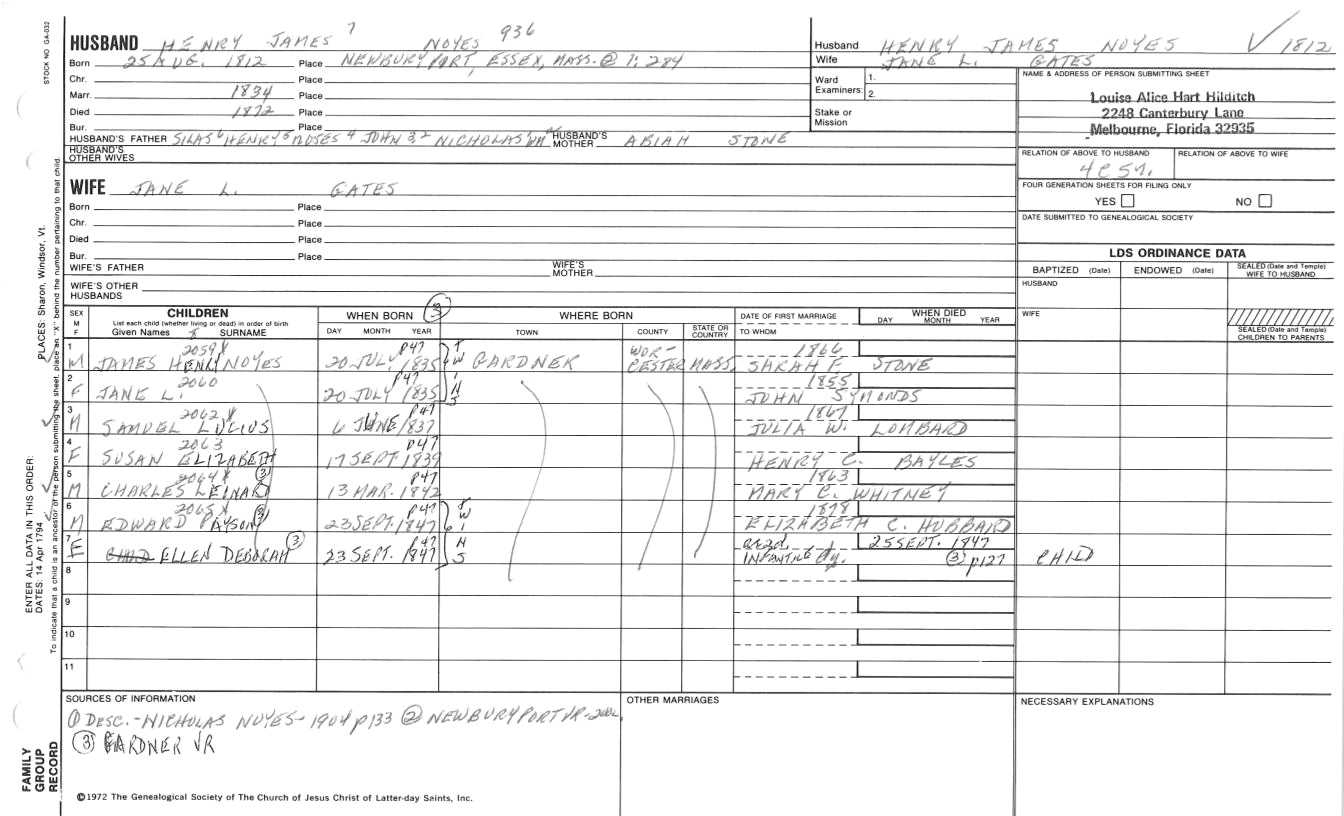 STOCK NO GA-032
HUSBAND HENRY JAMES 7 NOYES 936
Born 25 AUG. 1812 Place NEWBURYPORT, ESSEX, MASS. @ 1:284
Chr. Place
Marr. 1834 Place
Died 1872 Place
Bur. Place
HUSBAND'S FATHER SILAS 6 HENRY 5 MOSES 4 JOHN 3, 2 NICHOLAS HUSBAND'S MOTHER ABIAH STONE
HUSBAND'S OTHER WIVES
Husband HENRY JAMES NOYES √ 1812
Wife JANE L. GATES
Ward Examiners: 1.
2.
Stake or Mission
NAME & ADDRESS OF PERSON SUBMITTING SHEET
Louise Alice Hart Hilditch
2248 Canterbury Lane
Melbourne, Florida 32935
RELATION OF ABOVE TO HUSBAND RELATION OF ABOVE TO WIFE
4C5R.
FOUR GENERATION SHEETS FOR FILING ONLY
YES NO
DATE SUBMITTED TO GENEALOGICAL SOCIETY
WIFE JANE L. GATES
Born Place
Chr. Place
Died Place
Bur. Place
WIFE'S FATHER WIFE'S MOTHER
WIFE'S OTHER HUSBANDS
LDS ORDINANCE DATA
BAPTIZED (Date) ENDOWED (Date) SEALED (Date and Temple) WIFE TO HUSBAND
HUSBAND
WIFE
SEALED (Date and Temple) CHILDREN TO PARENTS
SEX M F CHILDREN WHEN BORN (3) WHERE BORN DATE OF FIRST MARRIAGE WHEN DIED
List each child (whether living or dead) in order of birth
Given Names SURNAME DAY MONTH YEAR TOWN COUNTY STATE OR COUNTRY TO WHOM DAY MONTH YEAR
1 2059 X p47 T WOR- 1866
M JAMES HENRY NOYES 20 JULY 1835 W GARDNER CESTER MASS. SARAH F. STONE
2 2060 p47 1855
F JANE L. 20 JULY 1835 JOHN SYMONDS
3 2062 X p47 1867
M SAMUEL LUCIUS 6 JUNE 1837 JULIA W. LOMBARD
4 2063 p47
F SUSAN ELIZABETH 17 SEPT 1839 HENRY C. BAYLES
5 2064 X (3) p47 1863
M CHARLES LEINARD 13 MAR. 1842 MARY C. WHITNEY
6 2065 X (3) p47 T 1878
M EDWARD PAYSON 23 SEPT. 1847 W ELIZABETH C. HUBBARD
7 (3) p47 25 SEPT. 1847
F CHILD ELLEN DEBORAH 23 SEPT. 1847 INFANTILE (3) p127 CHILD
8
9
10
11
SOURCES OF INFORMATION OTHER MARRIAGES NECESSARY EXPLANATIONS
(1) DESC.-NICHOLAS NOYES-1904 p133 (2) NEWBURYPORT VR
(3) GARDNER VR
©1972 The Genealogical Society of The Church of Jesus Christ of Latter-day Saints, Inc.
FAMILY GROUP RECORD
ENTER ALL DATA IN THIS ORDER:
DATES: 14 Apr 1794
PLACES: Sharon, Windsor, Vt.
To indicate that a child is an ancestor of the person submitting the sheet, place an "X" behind the number pertaining to that child.